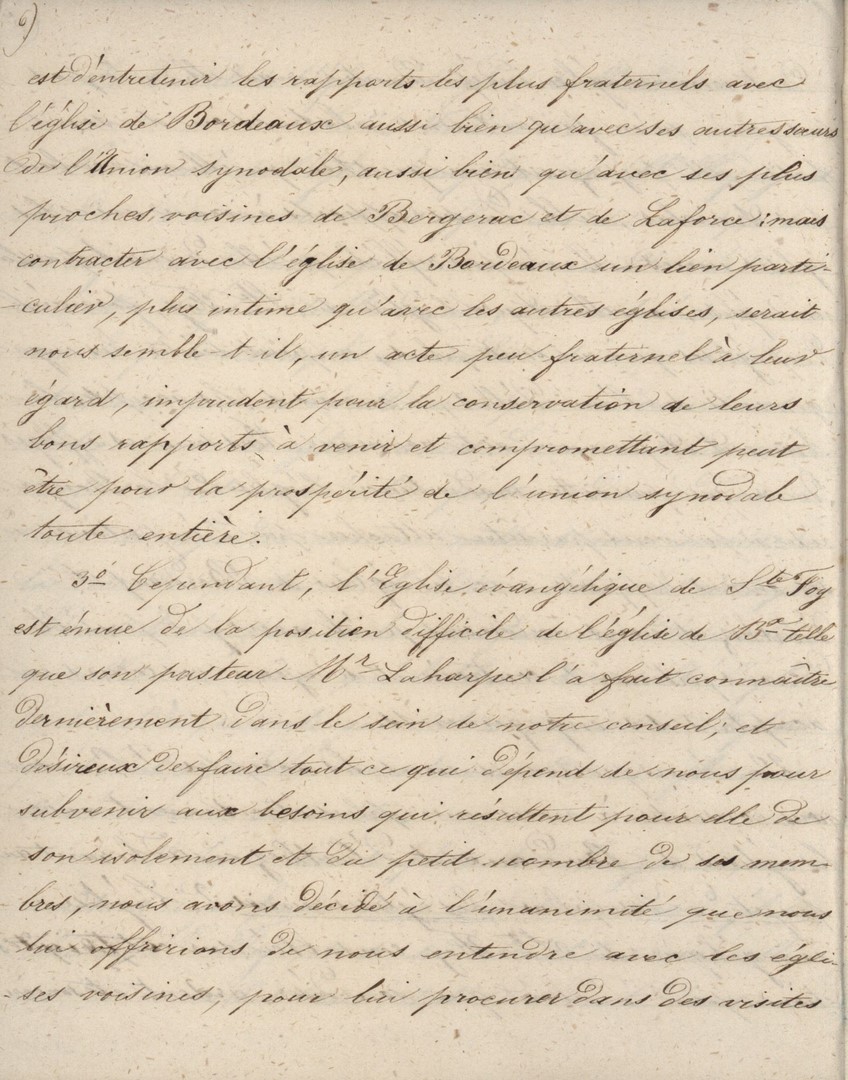 6)
est d'entretenir les rapports les plus fraternels avec
l'église de Bordeaux aussi bien qu'avec ses autres sœurs
de l'Union synodale, aussi bien qu'avec ses plus
proches voisines de Bergerac et de Laforce; mais
contracter avec l'église de Bordeaux un lien parti-
-culier, plus intime qu'avec les autres églises, serait
nous semble-t-il, un acte peu fraternel à leur
égard, imprudent pour la conservation de leurs
bons rapports à venir et compromettant peut
être pour la prospérité de l'union synodale
toute entière.
3º Cependant, l'Eglise évangélique de Ste Foy
est émue de la position difficile de l'église de Bx telle
que son pasteur Mr Laharpe l'a fait connaître
dernièrement dans le sein de notre conseil; et
désireux de faire tout ce qui dépend de nous pour
subvenir aux besoins qui résultent pour elle de
son isolement et du petit nombre de ses mem-
bres, nous avons décidé à l'unanimité que nous
lui offririons de nous entendre avec les égli-
-ses voisines, pour lui procurer dans des visites